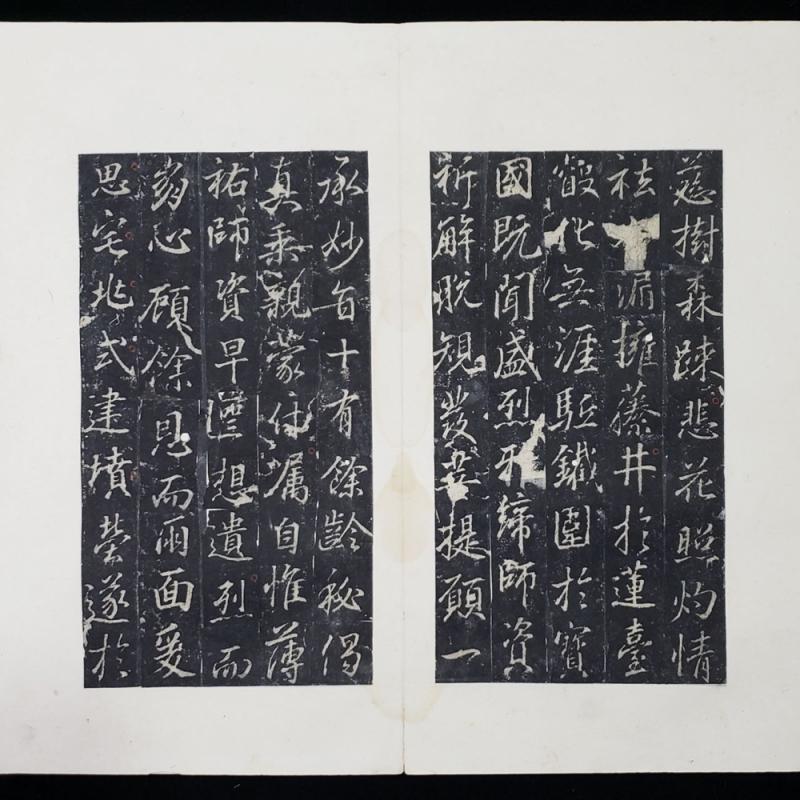 慈樹森疎悲花照灼情
祛漏擁藤井於蓮臺
化無涯駈鐵圍於寶
國既聞盛烈締師資
祈解脫規發菩提願一
承妙旨十有餘齡秘偈
真乘親蒙付囑自惟薄
祐師資早想遺烈而
崩心顧餘息而雨面爰
思宅兆式建墳塋遂於